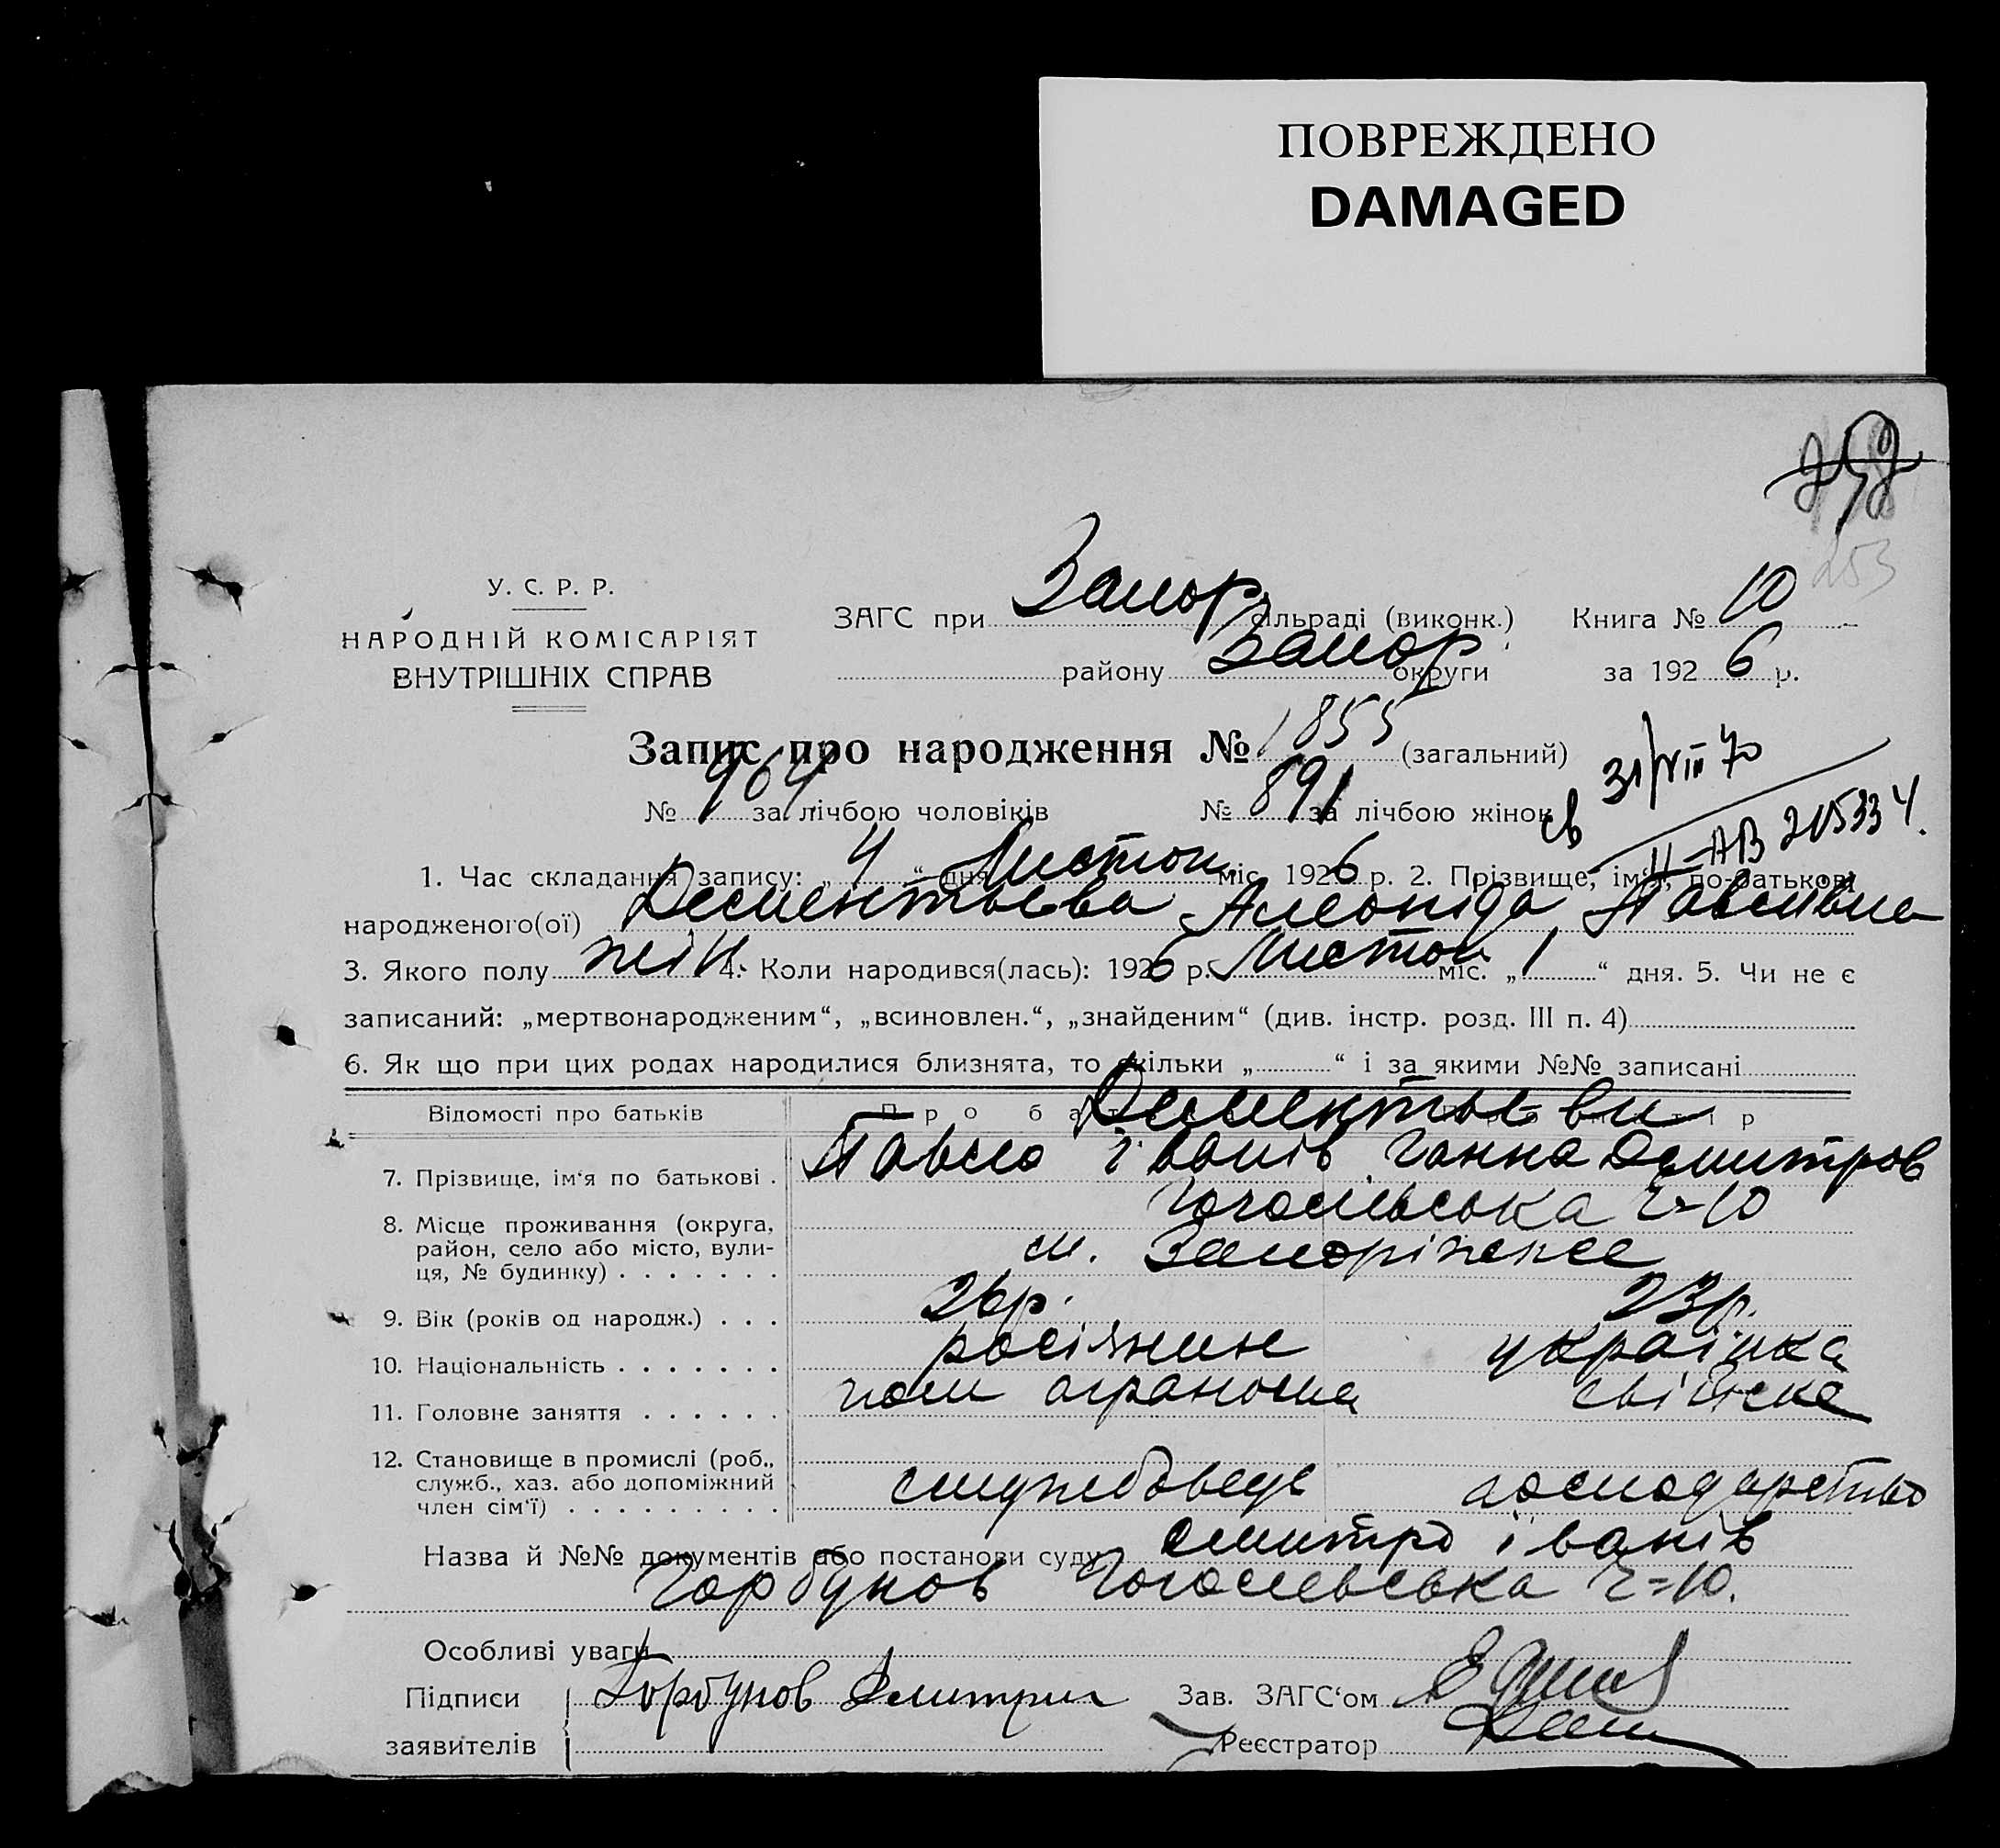 ПОВРЕЖДЕНО
DAMAGED
253
У. С. Р. Р.
НАРОДНІЙ КОМІСАРІЯТ
ВНУТРІШНІХ СПРАВ
ЗАГС при Запор. сільраді (виконк.) Книга № 10
району Запор. округи за 1926 р.
Запис про народження № 1855 (загальний)
№ 964 за лічбою чоловіків № 891 за лічбою жінок
св 31/VIII 70
II-АВ 215334.
1. Час складання запису: „4“ дня Листоп. міс. 1926 р. 2. Прізвище, ім‘я, по-батькові
народженого(ої) Дементьєва Павлівна
3. Якого полу жін 4. Коли народився(лась): 1926 р. Листоп міс. „1“ дня. 5. Чи не є
записаний: „мертвонародженим“, „всиновлен.“, „знайденим“ (див. інстр. розд. III п. 4)
6. Як що при цих родах народилися близнята, то скільки „ “ і за якими №№ записані
Відомості про батьків
Дементьєви
7. Прізвище, ім‘я по батькові . Павло Іванів Ганна Дмитров
Гоголівська ч=10
8. Місце проживання (округа,
район, село або місто, вули-
ця, № будинку) . . . . . . . м. Запоріжжя
9. Вік (років од народж.) . . . 26р. 23р.
10. Національність . . . . . . . росіянин українка
11. Головне заняття . . . . . . пом агранома свійске
12. Становище в промислі (роб.,
служб., хаз. або допоміжний
член сім‘ї) . . . . . . . . . службовець господарство
Назва й №№ документів або постанови суду Дмитро Іванів
Горбунов Гоголевська ч=10.
Особливі уваги
Підписи Горбунов Дмитрий Зав. ЗАГС‘ом
заявителів Реєстратор